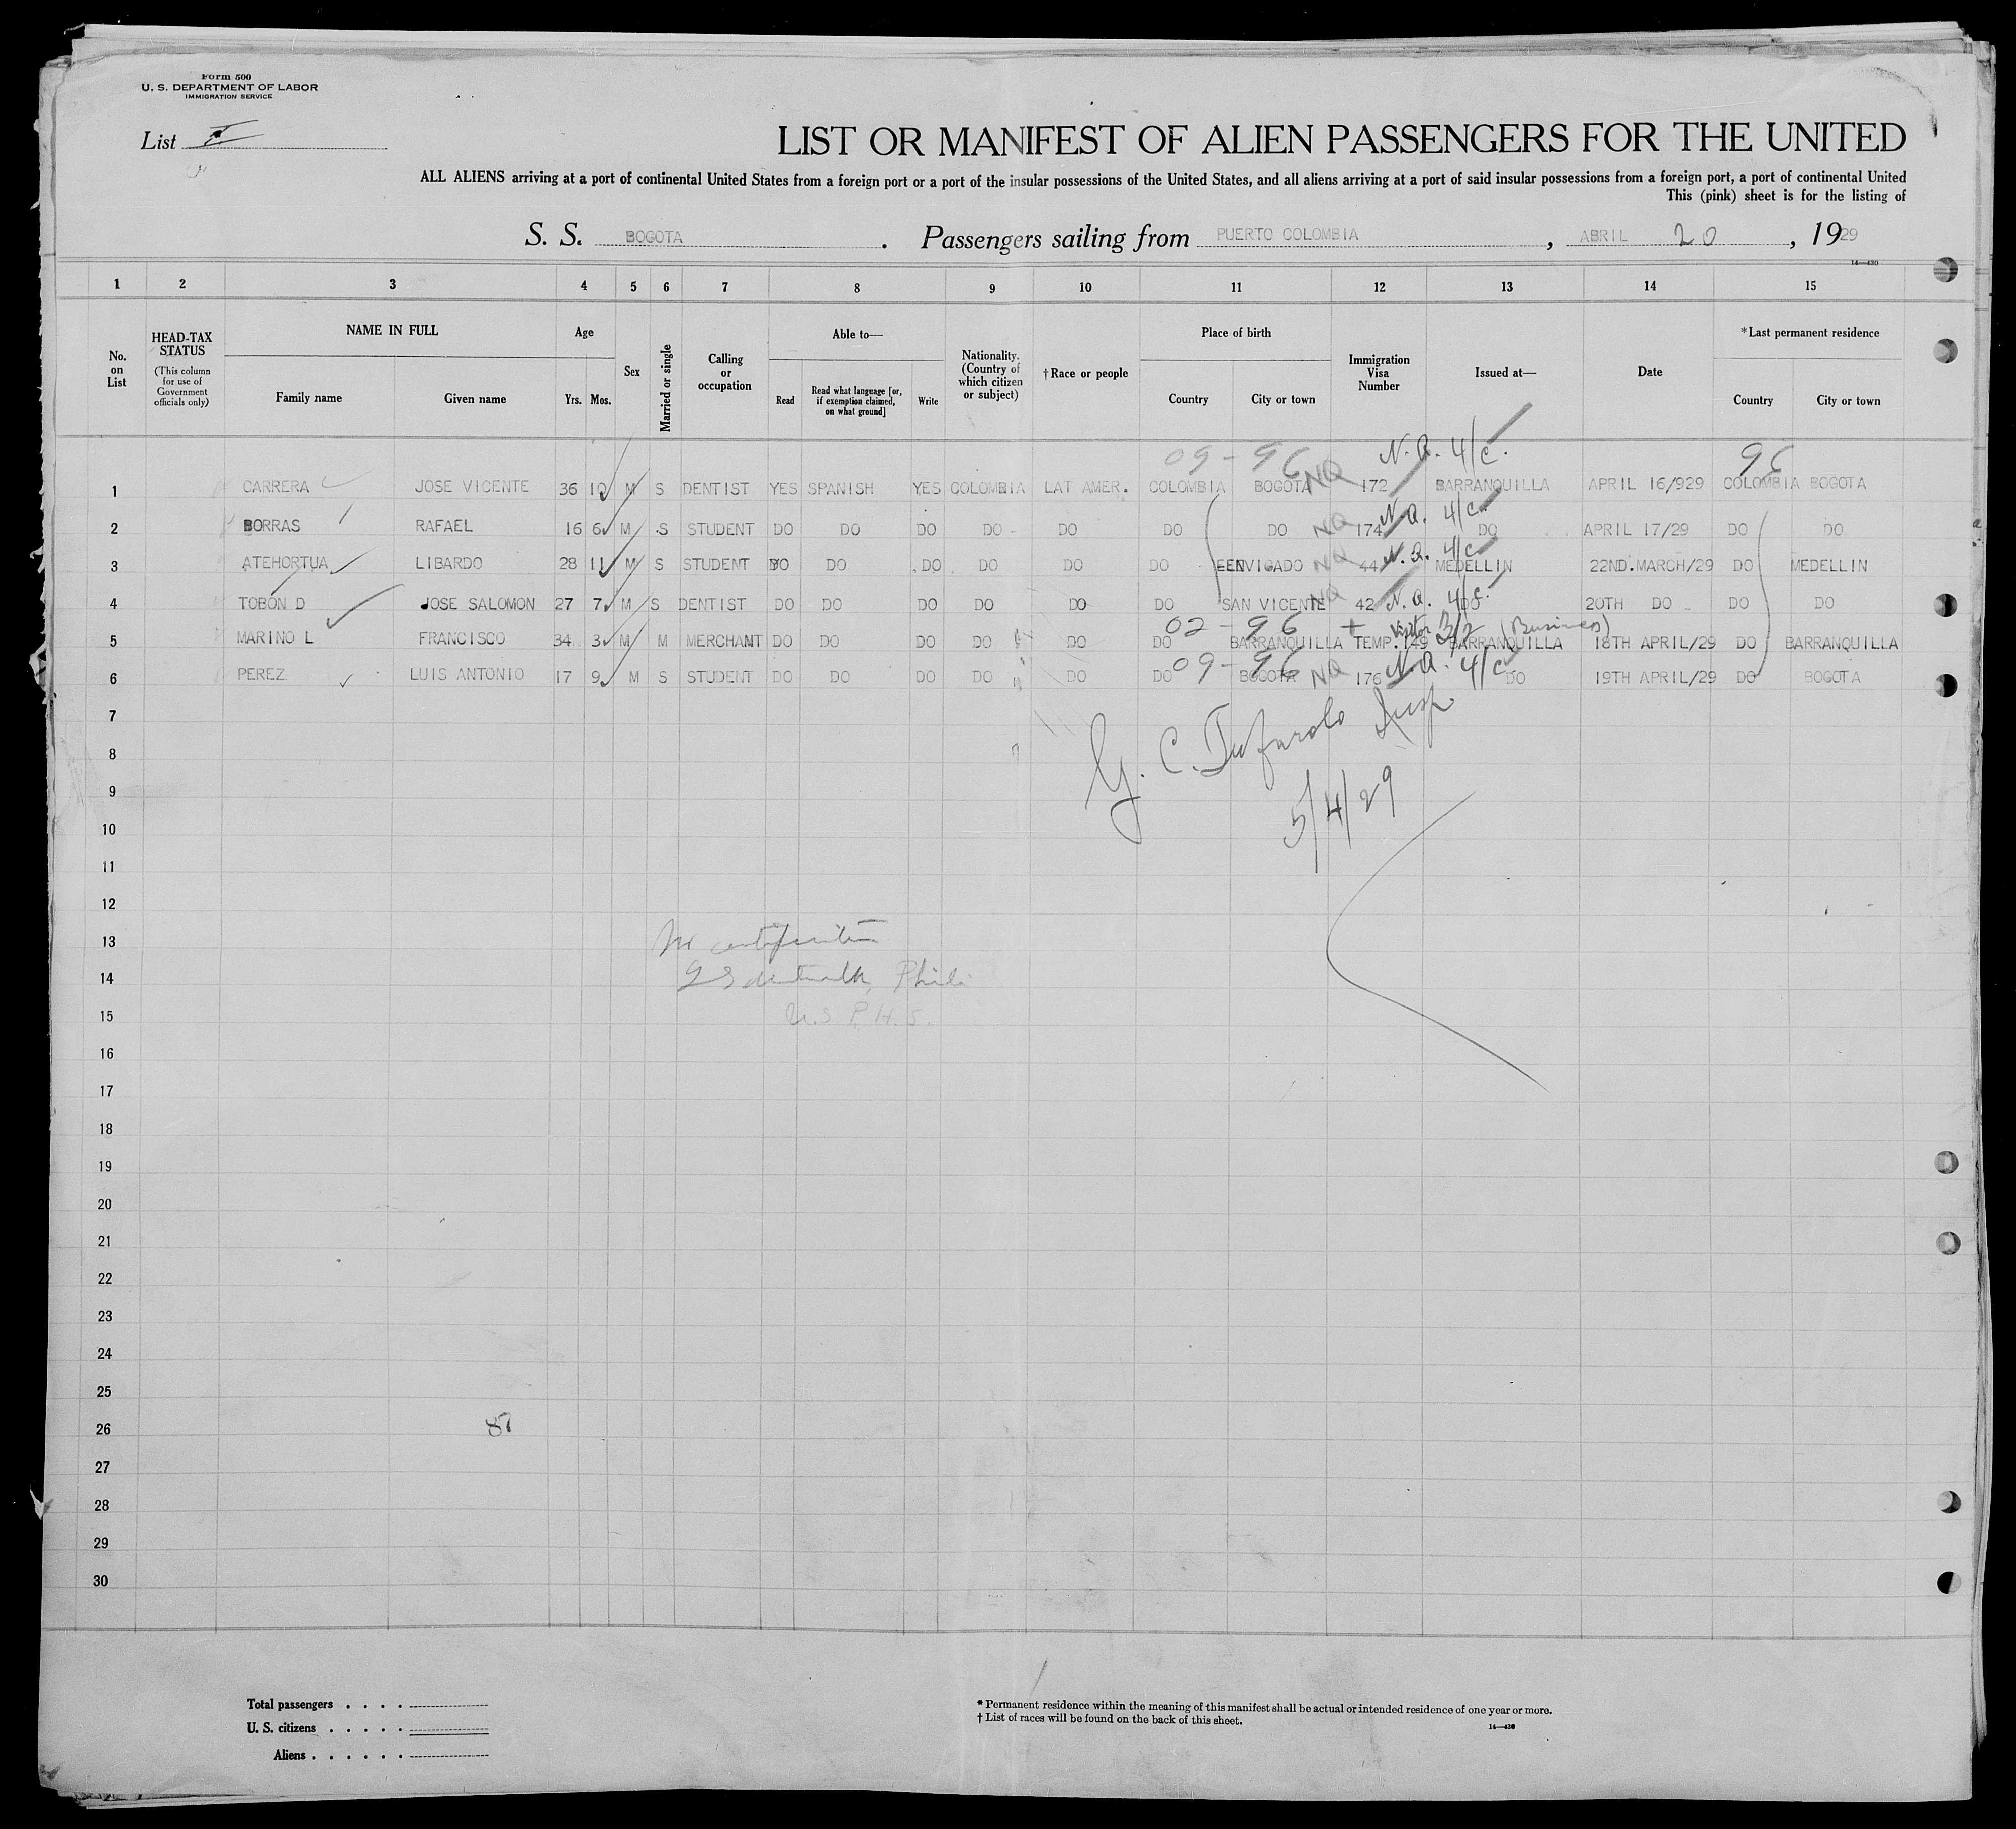 Form 500
U. S. DEPARTMENT OF LABOR
IMMIGRATION SERVICE
List I
LIST OR MANIFEST OF ALIEN PASSENGERS FOR THE UNITED
ALL ALIENS arriving at a port of continental United States from a foreign port or a port of the insular possessions of the United States, and all aliens arriving at a port of said insular possessions from a foreign port, a port of continental United
This (pink) sheet is for the listing of
S. S. BOGOTA . Passengers sailing from PUERTO COLOMBIA , ABRIL 20 , 1929
14—430
1 2 3 4 5 6 7 8 9 10 11 12 13 14 15
No. on List
HEAD-TAX STATUS
(This column for use of Government officials only)
NAME IN FULL
Family name Given name
Age
Yrs. Mos.
Sex
Married or single
Calling or occupation
Able to—
Read Read what language [or, if exemption claimed, on what ground] Write
Nationality. (Country of which citizen or subject)
† Race or people
Place of birth
Country City or town
Immigration Visa Number
Issued at—
Date
*Last permanent residence
Country City or town
09-96 N.Q. 4/c. 96
1 CARRERA JOSE VICENTE 36 10 M S DENTIST YES SPANISH YES COLOMBIA LAT AMER. COLOMBIA BOGOTA NQ 172 BARRANQUILLA APRIL 16/929 COLOMBIA BOGOTA
2 BORRAS RAFAEL 16 6 M S STUDENT DO DO DO DO DO DO DO NQ 174 N.Q. 4/c DO APRIL 17/29 DO DO
3 ATEHORTUA LIBARDO 28 11 M S STUDENT DO DO DO DO DO DO ENVIGADO NQ 44 N.Q. 4/c MEDELLIN 22ND.MARCH/29 DO MEDELLIN
4 TOBON D JOSE SALOMON 27 7 M S DENTIST DO DO DO DO DO DO SAN VICENTE NQ 42 N.Q. 4/c. DO 20TH DO DO DO
02-96 + Visitor 3/2 (Business)
5 MARINO L FRANCISCO 34 3 M M MERCHANT DO DO DO DO DO DO BARRANQUILLA TEMP.149 BARRANQUILLA 18TH APRIL/29 DO BARRANQUILLA
6 PEREZ LUIS ANTONIO 17 9 M S STUDENT DO DO DO DO DO DO 09-96 BOGOTA NQ 176 N.Q. 4/c DO 19TH APRIL/29 DO BOGOTA
7
8
9
5/4/29
10
11
12
13
14
15
U.S.P.H.S.
16
17
18
19
20
21
22
23
24
25
26
87
27
28
29
30
Total passengers . . . .
U. S. citizens . . . . .
Aliens . . . . . .
* Permanent residence within the meaning of this manifest shall be actual or intended residence of one year or more.
† List of races will be found on the back of this sheet.
14—430